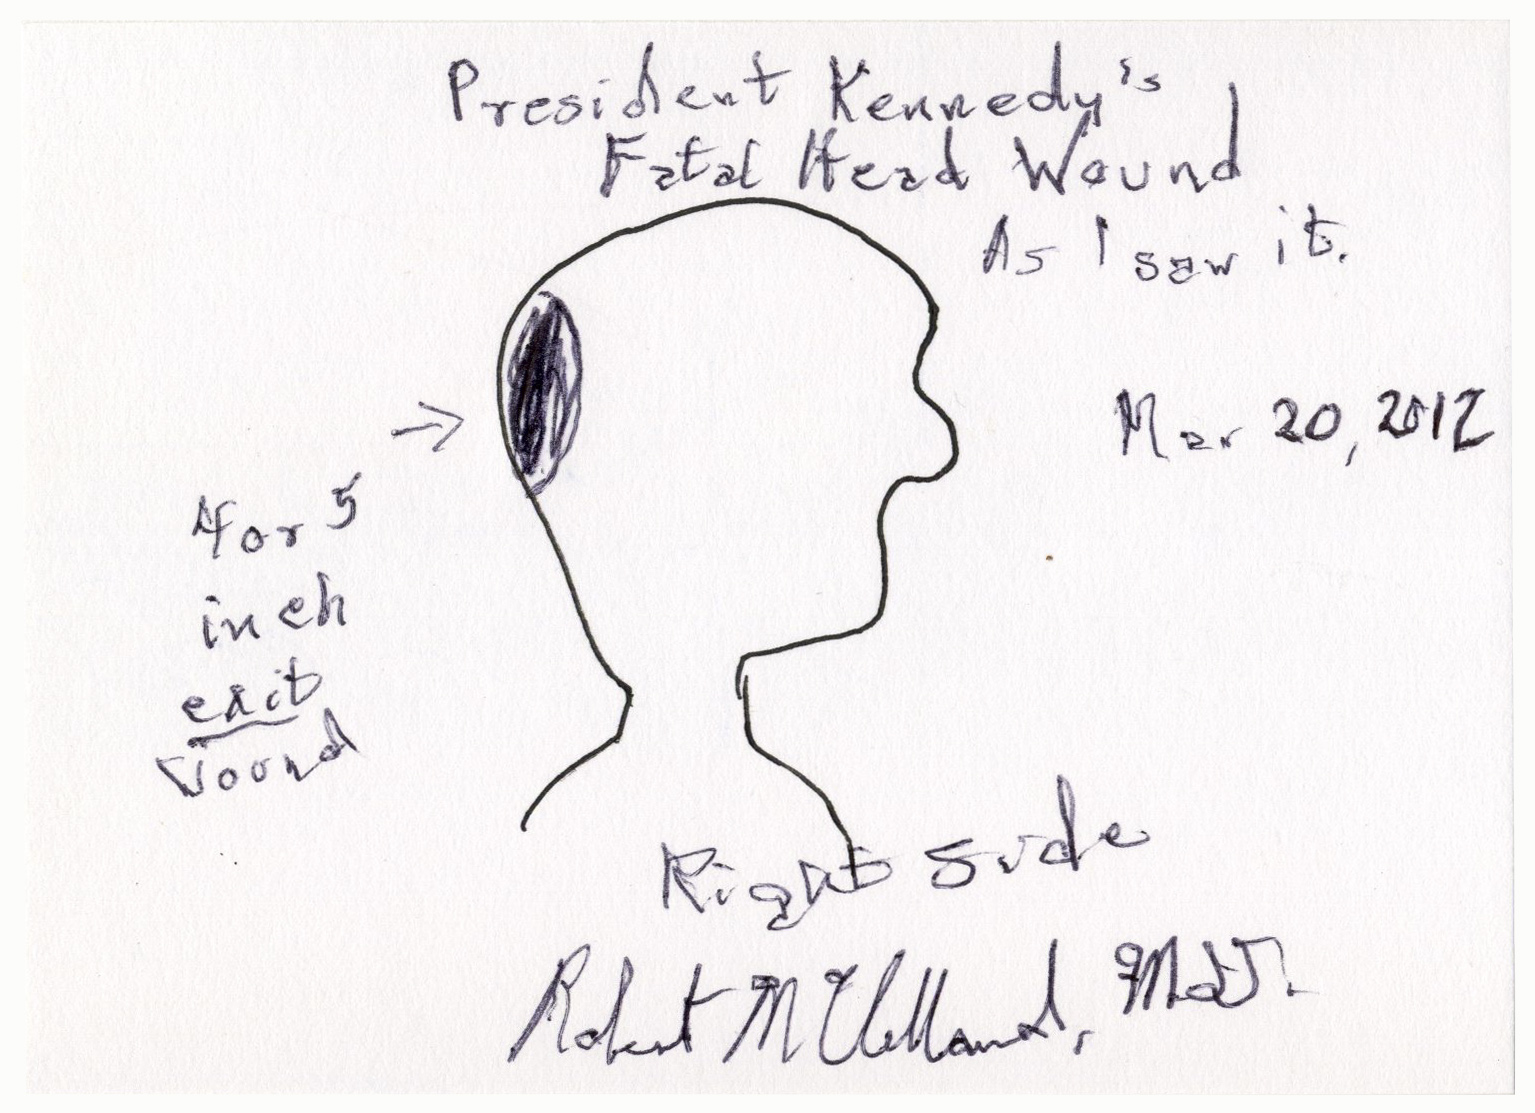 President Kennedy's
Fatal Head Wound
As I saw it.
Mar 20, 2012
4 or 5
inch
exit
wound
Right side
Robert McClelland, M.D.